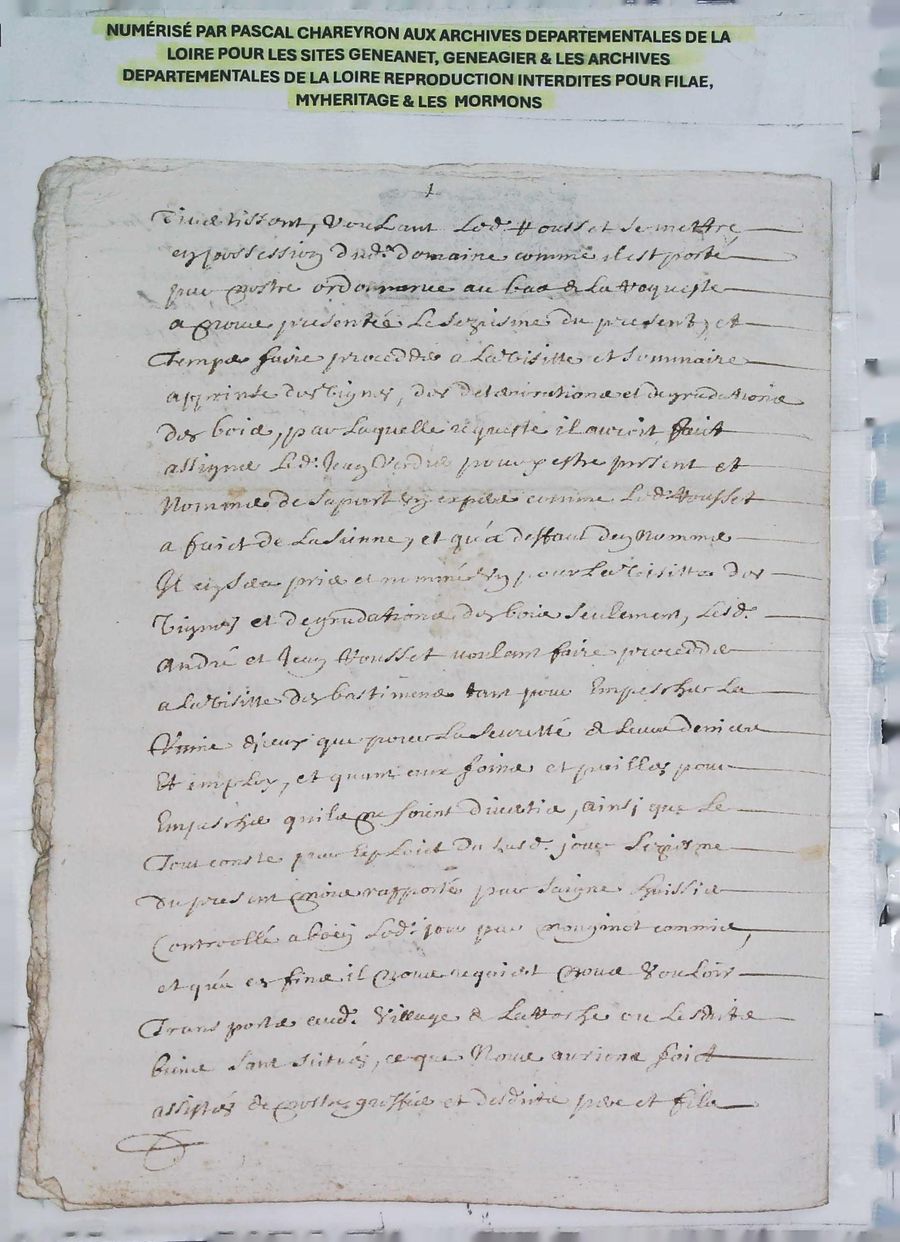 NUMÉRISÉ PAR PASCAL CHAREYRON AUX ARCHIVES DEPARTEMENTALES DE LA
LOIRE POUR LES SITES GENEANET, GENEAGIER & LES ARCHIVES
DEPARTEMENTALES DE LA LOIRE REPRODUCTION INTERDITES POUR FILAE,
MYHERITAGE & LES MORMONS
1
voulant led. Housset se mettre
en possession dud. domaine comme il est porté
par nostre ordonnance au bas de la requeste
a nous presentée le seziesme du present, et
temps faire proceder a la visitte et sommaire
apprinse des vignes, des deteriorations et degradations
des bois, par laquelle requeste il auroit fait
assigner led. Jean pour y estre present et
nommer de sa part un expert comme led. Housset
a faict de la sienne, et qu'a deffaut d'en nommer
il en sera pris et nommé un pour la visitte des
vignes et degradations des bois seulement, lesd.
André et Jean Housset voulant faire proceder
a la visitte des bastimens tant pour empescher la
ruine d'iceux que pour la seuretté de leurs deniers
et employ, et quant aux foins et pailles pour
empescher quils ne soient divertis, ainsi que le
tout conste par exploict du susd. jour seziesme
du present mois rapporté par Saigne huissier
controollé led. jour par commis,
et qu'a ces fins il nous requiert nous vouloir
transporter aud. village de la Roche ou lesdits
biens sont situés, ce que nous aurions faict
assistés de nostre greffier et desdits pere et fils